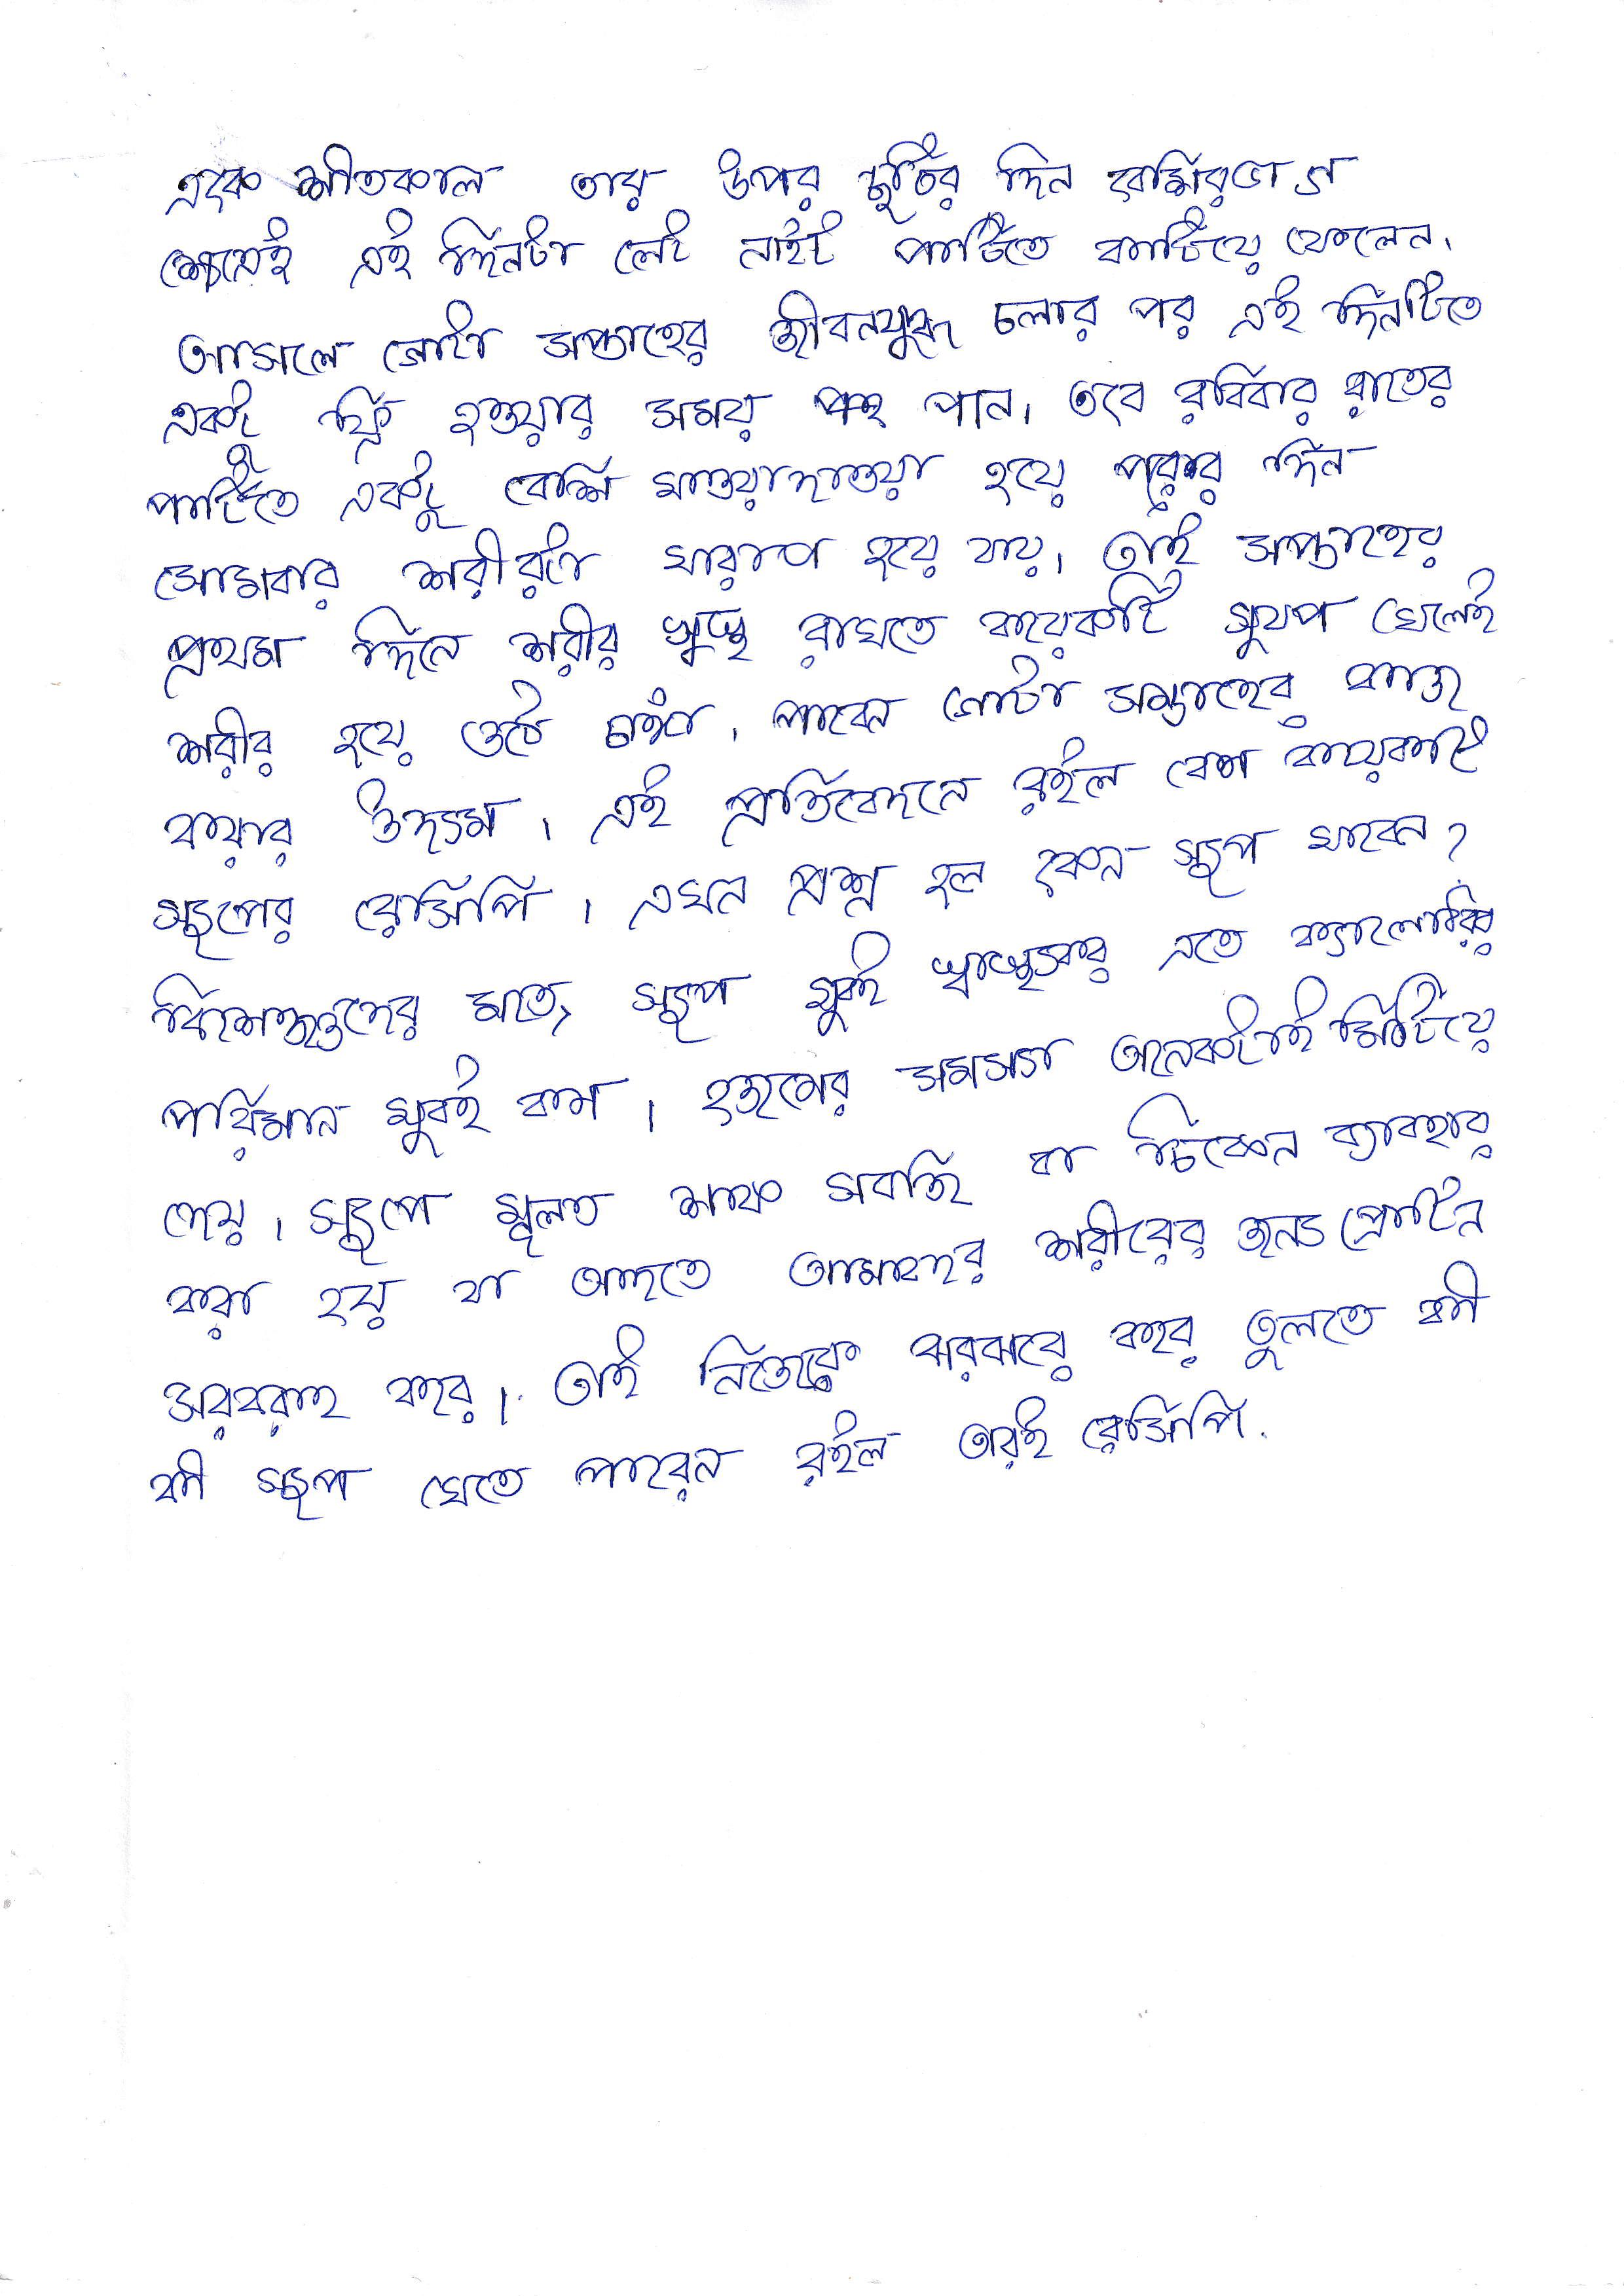 একে শীতকাল তার উপর ছুটির দিন বেশিরভাগ
এই দিনটা লেট নাইট পার্টিতে কাটিয়ে ফেলেন।
আসলে গোটা সপ্তাহের জীবনযুদ্ধ চলার পর এই দিনটিতে
একটু ফ্রি হওয়ার সময় পান। তবে রবিবার রাতের
পার্টিতে একটু বেশি খাওয়াদাওয়া হয়ে পরের দিন
সোমবার শরীরটা খারাপ হয়ে যায়। তাই সপ্তাহের
প্রথম দিনে শরীর সুস্থ রাখতে কয়েকটি স্যুপ খেলেই
শরীর হয়ে ওঠে চাঙ্গা, পাবেন গোটা সপ্তাহের কাজ
করার উদ্যম। এই প্রতিবেদনে রইল বেশ কয়েকটি
স্যুপের রেসিপি। এখন প্রশ্ন হল কেন স্যুপ খাবেন?
বিশেষজ্ঞদের মতে, স্যুপ খুবই স্বাস্থ্যকর এতে ক্যালোরির
পরিমান খুবই কম। হজমের সমস্যা অনেকটাই মিটিয়ে
দেয়। স্যুপে মূলত শাক সবজি বা চিকেন ব্যাবহার
করা হয় যা আদতে আমাদের শরীরের জন্য প্রোটিন
সরবরাহ করে। তাই নিজেকে ঝরঝরে করে তুলতে কী
কী স্যুপ খেতে পারেন রইল তারই রেসিপি.